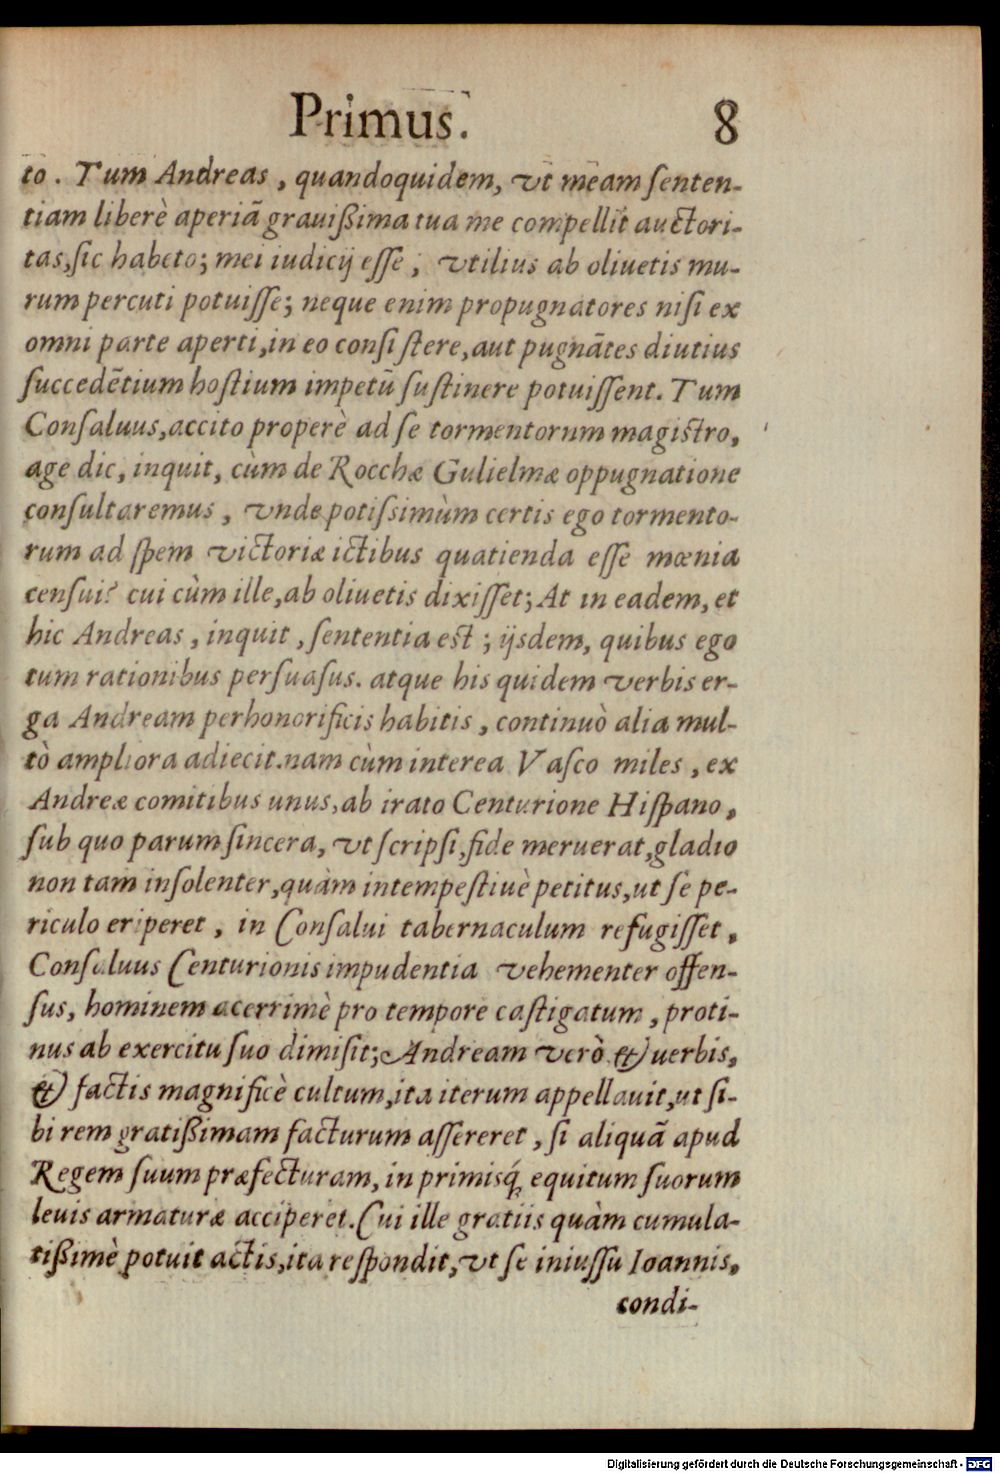 Primus. 8
to. Tum Andreas, quandoquidem, vt meam ſenten-
tiam liberè aperiā grauißima tua me compellit auctori-
tas, ſic habeto; mei iudicij eſſe, vtilius ab oliuetis mu-
rum percuti potuiſſe; neque enim propugnatores niſi ex
omni parte aperti, in eo conſiſtere, aut pugnātes diutius
ſuccedētium hoſtium impetū ſuſtinere potuiſſent. Tum
Conſaluus, accito properè ad ſe tormentorum magiſtro,
age dic, inquit, cùm de Rocchæ Gulielmæ oppugnatione
conſultaremus, vnde potiſsimùm certis ego tormento-
rum ad ſpem victoriæ ictibus quatienda eſſe mœnia
cenſui? cui cùm ille, ab oliuetis dixiſſet; At in eadem, et
hic Andreas, inquit, ſententia eſt; ijsdem, quibus ego
tum rationibus perſuaſus. atque his quidem verbis er-
ga Andream perhonorificis habitis, continuò alia mul-
tò ampliora adiecit. nam cùm interea Vaſco miles, ex
Andreæ comitibus unus, ab irato Centurione Hiſpano,
ſub quo parum ſincera, vt ſcripſi, fide meruerat, gladio
non tam inſolenter, quàm intempeſtiuè petitus, ut ſe pe-
riculo eriperet, in Conſalui tabernaculum refugiſſet,
Conſaluus Centurionis impudentia vehementer offen-
ſus, hominem acerrimè pro tempore caſtigatum, proti-
nus ab exercitu ſuo dimiſit; Andream verò & uerbis,
& factis magnificè cultum, ita iterum appellauit, ut ſi-
bi rem gratißimam facturum aſſereret, ſi aliquā apud
Regem ſuum præfecturam, in primisq́; equitum ſuorum
leuis armaturæ acciperet. Cui ille gratiis quàm cumula-
tißimè potuit actis, ita reſpondit, vt ſe iniuſſu Ioannis,
condi-
Digitalisierung gefördert durch die Deutsche Forschungsgemeinschaft - DFG